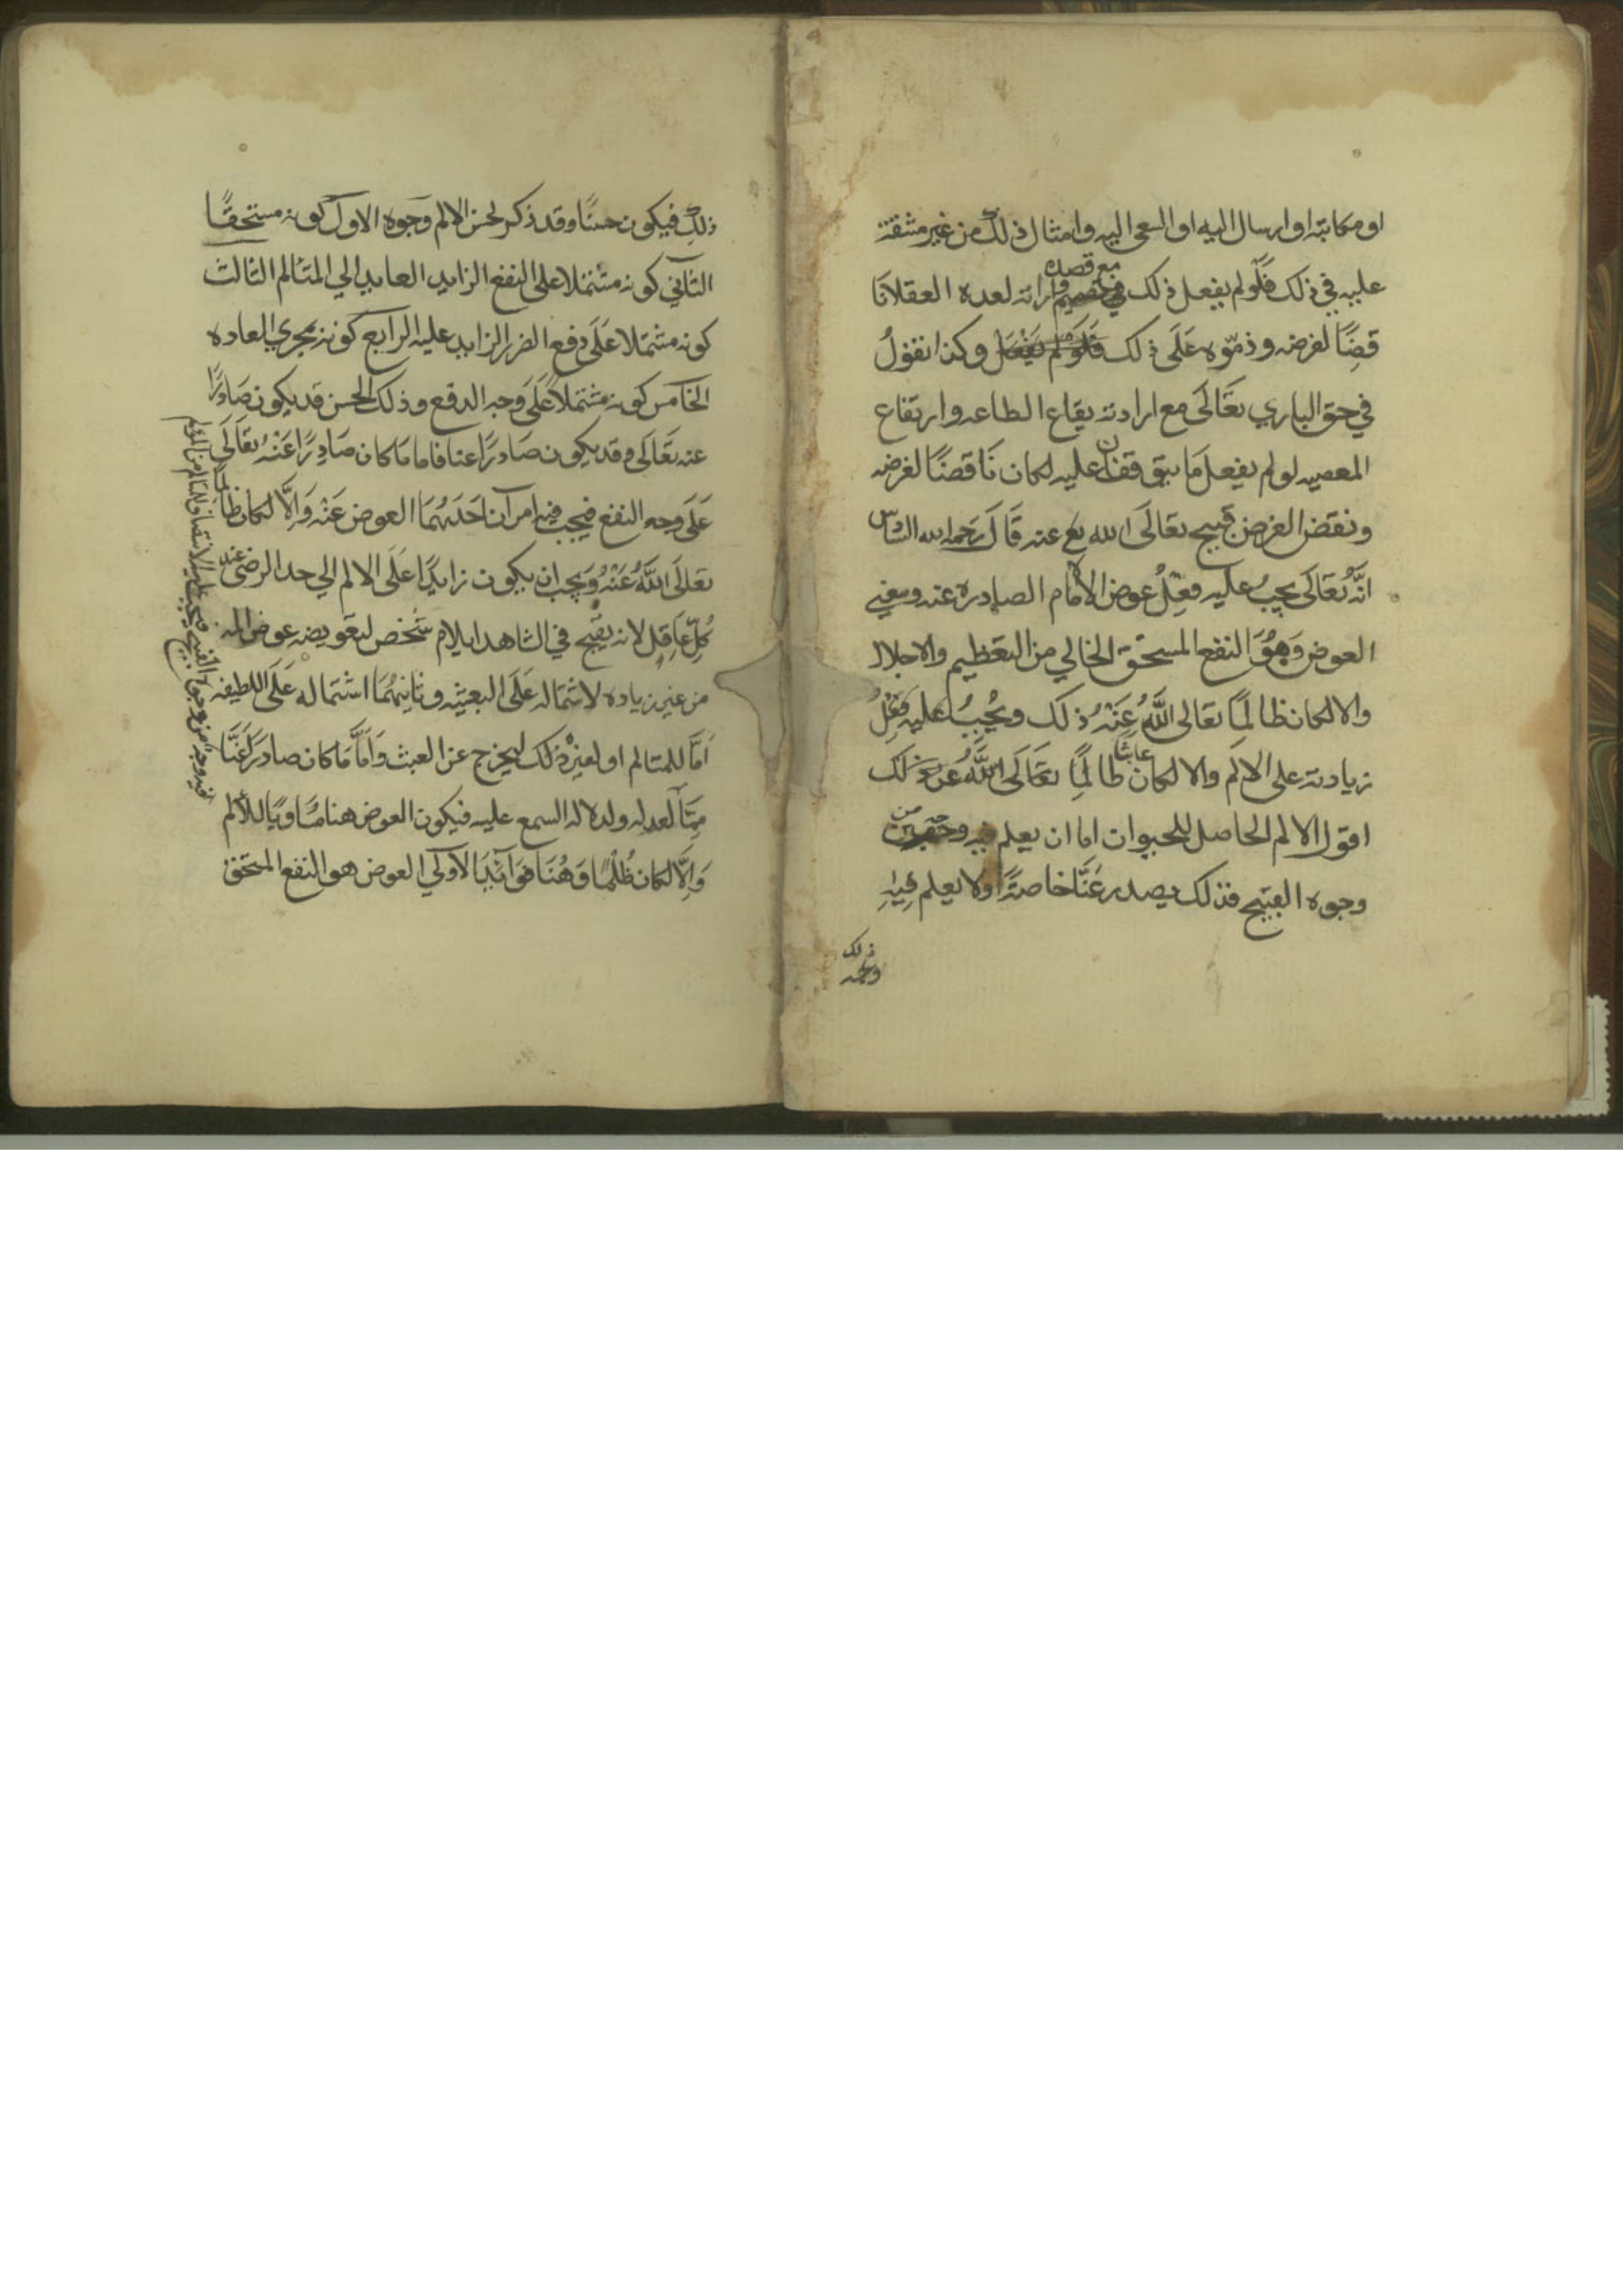 او مكاتبته او ارسال اليه او السعى اليه وامثال ذلك من غير مشقة
عليه في ذلك فلو لم يفعل ذلك مع قصده ارادته لعده العقلا نا
قضًا لغرضه وذموه على ذلك فلو لم يفعل وكذا نقول
في حق الباري تعالى مع ارادته يقاع الطاعه وارتفاع
المعصيه لو لم يفعل ما يتوقفان عليه لكان ناقضًا لغرضه
ونقض الغرض قبيح تعالى الله تع عنه قال رحمه الله السادس
انه تعالى يجب عليه فعل عوض الالام الصادره عنه ومعني
العوض وهو النفع المستحق الخالي من التعظيم والاجلال
والا لكان ظالمًا تعالى الله عنه ذلك ويجب عليه فعل
زيادته على الالم والا لكان عابثًا ظالمًا تعالى الله عن ذلك
اقول الالم الحاصل للحيوان اما ان يعلم فيه وجه من
وجوه القبيح فذلك يصدر عنا خاصة او لا يعلم فيه
ذلك
ذلك فيكون حسنًا وقد ذكر لحسن الالم وجوه الاول كونه مستحقًا
الثاني كونه مشتملا على النفع الزايد العايد الي المتالم الثالث
كونه مشتملا على دفع الضرر الزايد عليه الرابع كونه بمجري العاده
الخامس كونه مشتملاً على وجه الدفع وذلك الحسن قد يكون صادرًا
عنه تعالى وقد يكون صادرًا عنا فاما ما كان صادرًا عنه تعالى
على وجه النفع فيجب فيه امران احدهما العوض عنه والا لكان ظالمًا
تعالى الله عنه ويجب ان يكون زايدًا على الالم الي حد الرضى عند
كل عاقل لانه يقبح في الشاهد ايلام شخص لتعويضه عوض المه
من غير زياده لاشتماله على البعثيه وثانيهما اشتماله على اللطيفه
اما للمتالم او لغيره ذلك ليخرج عن العبث واما ما كان صادر عنا
مما لعدله ولدلاله السمع عليه فيكون العوض هنا مساويًا للالم
والا لكان ظلمًا وهنا فوآئد الاولي العوض هو النفع المستحق